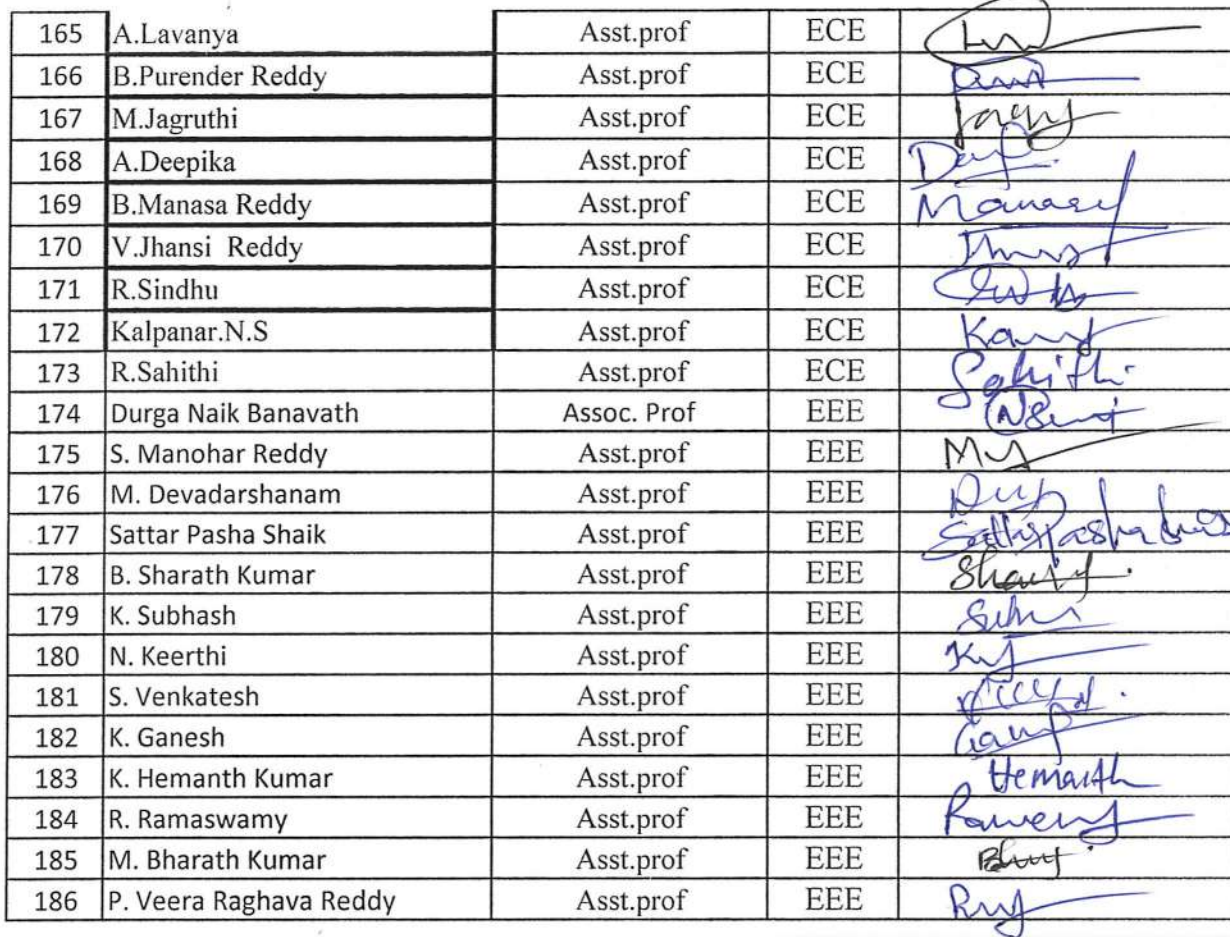 165 A.Lavanya Asst.prof ECE
166 B.Purender Reddy Asst.prof ECE
167 M.Jagruthi Asst.prof ECE
168 A.Deepika Asst.prof ECE
169 B.Manasa Reddy Asst.prof ECE
170 V.Jhansi Reddy Asst.prof ECE
171 R.Sindhu Asst.prof ECE
172 Kalpanar.N.S Asst.prof ECE
173 R.Sahithi Asst.prof ECE Sahithi
174 Durga Naik Banavath Assoc. Prof EEE
175 S. Manohar Reddy Asst.prof EEE
176 M. Devadarshanam Asst.prof EEE
177 Sattar Pasha Shaik Asst.prof EEE
178 B. Sharath Kumar Asst.prof EEE
179 K. Subhash Asst.prof EEE
180 N. Keerthi Asst.prof EEE
181 S. Venkatesh Asst.prof EEE
182 K. Ganesh Asst.prof EEE
183 K. Hemanth Kumar Asst.prof EEE Hemanth
184 R. Ramaswamy Asst.prof EEE
185 M. Bharath Kumar Asst.prof EEE
186 P. Veera Raghava Reddy Asst.prof EEE